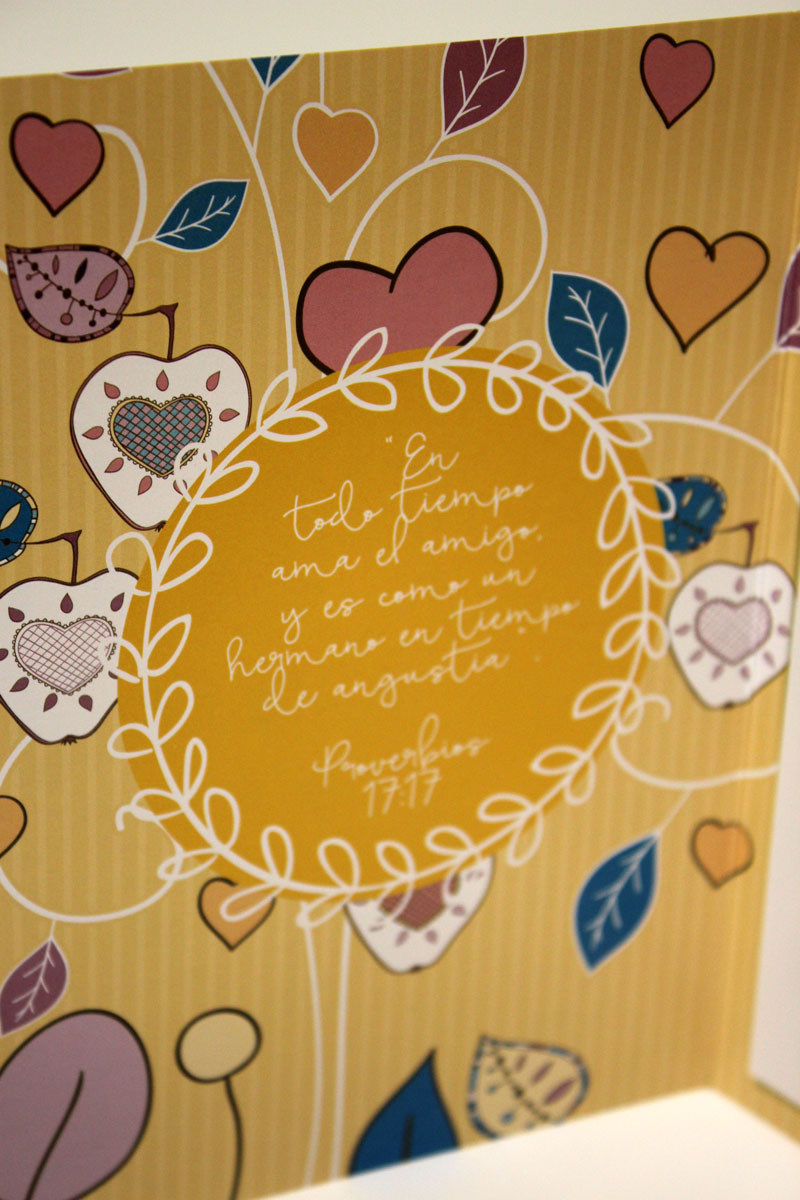 "En
todo tiempo
ama el amigo,
y es como un
hermano en tiempo
de angustia".
Proverbios
17:17